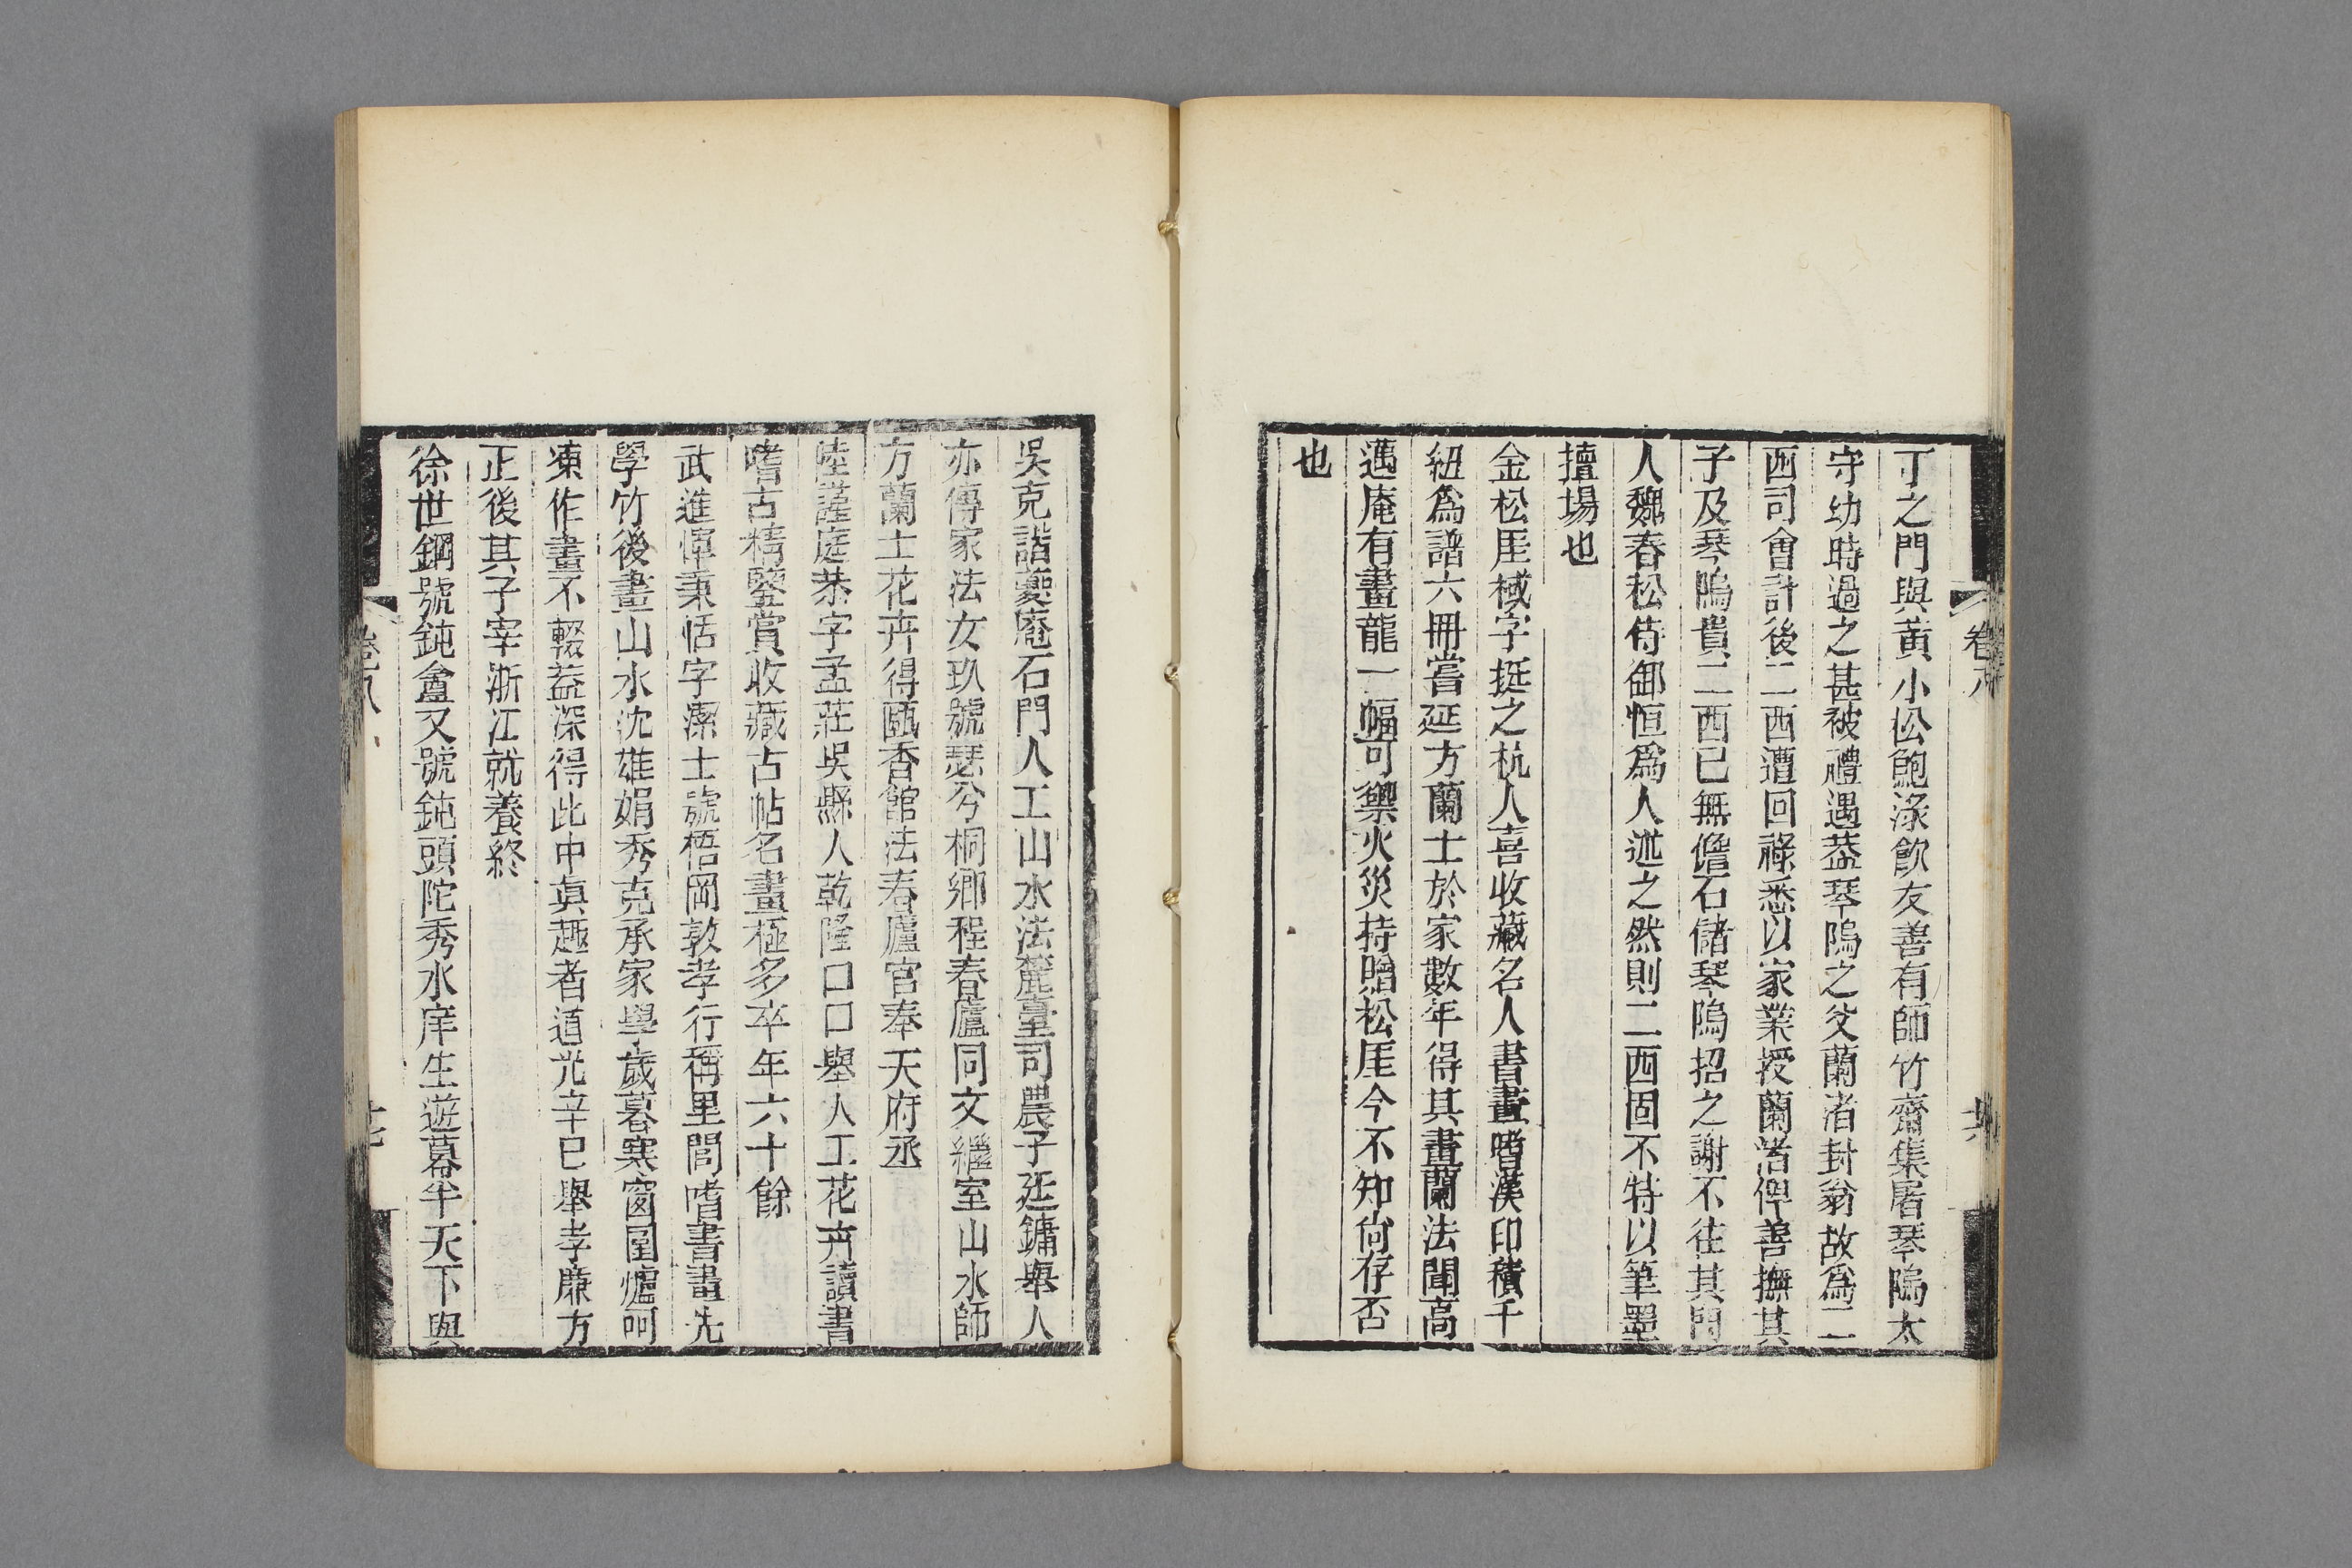 丁之門與黃小松鮑淥飮友善有師竹齋集屠琴隖太
守幼時過之甚被禮遇葢琴隖之父蘭渚封翁故爲二
西司會計後二西遭回祿悉以家業授蘭渚俾善撫其
子及琴隖貴二西已無儋石儲琴隖招之謝不往其門
人魏春松侍御恒爲人述之然則二西固不特以筆墨
擅場也
金松厓棫字挺之杭人喜收藏名人書畫嗜漢印積千
紐爲譜六冊嘗延方蘭士於家數年得其畫蘭法聞高
邁庵有畫龍一幅可禦火災持贈松厓今不知尙存否
也
卷八
吳克諧夔庵石門人工山水法麓臺司農子廷鏞舉人
亦傳家法女玖號瑟兮桐鄉程春廬同文繼室山水師
方蘭士花卉得甌香館法春廬官奉天府丞
陸謹庭恭字孟莊吳縣人乾隆口口舉人工花卉讀書
嗜古精鑒賞收藏古帖名畫極多卒年六十餘
武進惲秉恬字潔士號梧岡敦孝行稱里閭嗜書畫先
學竹後畫山水沈雄娟秀克承家學歲暮寒窗圍爐呵
凍作畫不輟益深得此中眞趣者道光辛巳舉孝廉方
正後其子宰浙江就養終
徐世鋼號鈍盦又號鈍頭陀秀水庠生遊幕半天下與
卷八
十七